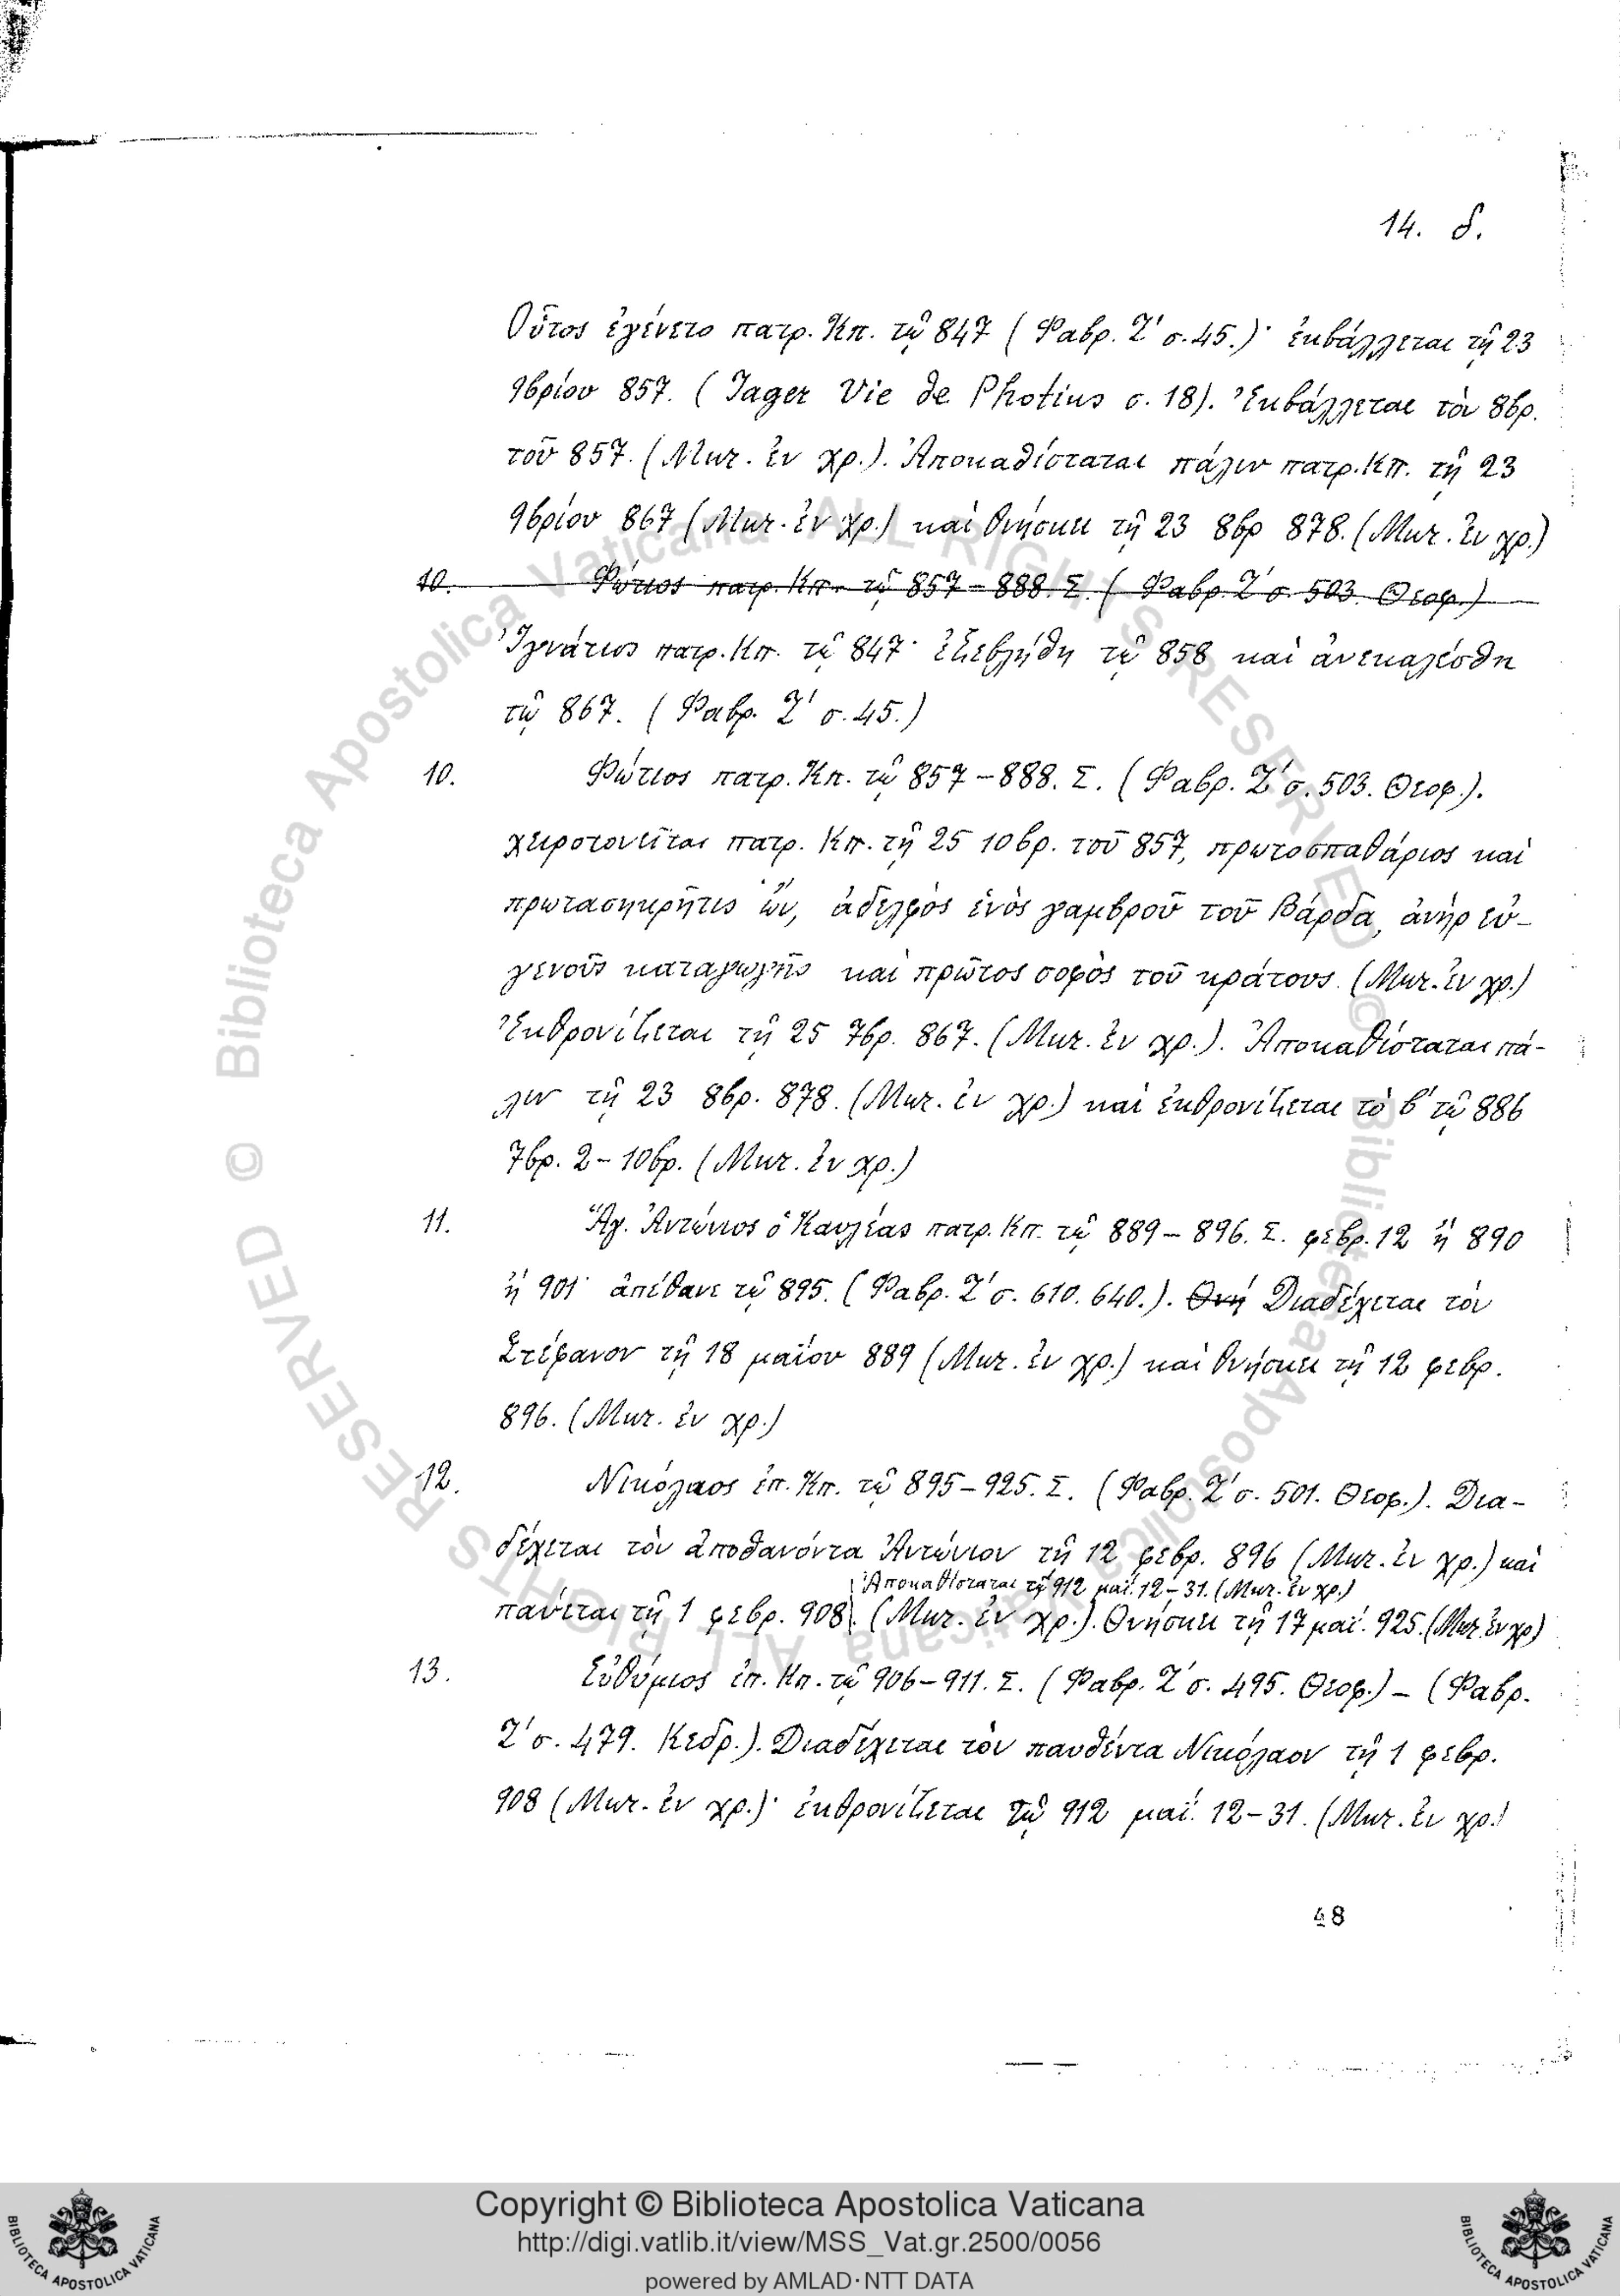 14. δ.
Οὗτος ἐγένετο πατρ. Κπ. τῷ 847 (Φαβρ. Ζ' σ. 45.)· ἐκβάλλεται τῇ 23
9βρίου 857. (Jager Vie de Photius σ. 18). Ἐκβάλλεται τὸν 8βρ.
τοῦ 857. (Μυτ. ἐν χρ.). Ἀποκαθίσταται πάλιν πατρ. Κπ. τῇ 23
9βρίου 867 (Μυτ. ἐν χρ.) καὶ θνήσκει τῇ 23 8βρ 878. (Μυτ. ἐν χρ.)
10. Φώτιος πατρ. Κπ. τῷ 857 - 888. Σ. (Φαβρ. Ζ' σ. 503. Θεοφ.)
Ἰγνάτιος πατρ. Κπ. τῷ 847· ἐξεβλήθη τῷ 858 καὶ ἀνεκαλέσθη
τῷ 867. (Φαβρ. Ζ' σ. 45.)
10. Φώτιος πατρ. Κπ. τῷ 857 - 888. Σ. (Φαβρ. Ζ' σ. 503. Θεοφ.).
χειροτονεῖται πατρ. Κπ. τῇ 25 10βρ. τοῦ 857, πρωτοσπαθάριος καὶ
πρωτασηκρῆτις ὤν, ἀδελφὸς ἑνὸς γαμβροῦ τοῦ Βάρδα, ἀνὴρ εὐ-
γενοῦς καταγωγῆς καὶ πρῶτος σοφὸς τοῦ κράτους. (Μυτ. ἐν χρ.)
Ἐκθρονίζεται τῇ 25 7βρ. 867. (Μυτ. ἐν χρ.). Ἀποκαθίσταται πά-
λιν τῇ 23 8βρ. 878. (Μυτ. ἐν χρ.) καὶ ἐκθρονίζεται τὸ β' τῷ 886
7βρ. 2 - 10βρ. (Μυτ. ἐν χρ.)
11. Ἅγ. Ἀντώνιος ὁ Καυλέας πατρ. Κπ. τῷ 889 - 896. Σ. φεβρ. 12 ἢ 890
ἢ 901· ἀπέθανε τῷ 895. (Φαβρ. Ζ' σ. 610. 640.). Θνή Διαδέχεται τὸν
Στέφανον τῇ 18 μαΐου 889 (Μυτ. ἐν χρ.) καὶ θνήσκει τῇ 12 φεβρ.
896. (Μυτ. ἐν χρ.)
12. Νικόλαος ἐπ. Κπ. τῷ 895 - 925. Σ. (Φαβρ. Ζ' σ. 501. Θεοφ.). Δια-
δέχεται τὸν ἀποθανόντα Ἀντώνιον τῇ 12 φεβρ. 896 (Μυτ. ἐν χρ.) καὶ
Ἀποκαθίσταται τῷ 912 μαΐ. 12 - 31. (Μυτ. ἐν χρ.)
παύεται τῇ 1 φεβρ. 908. (Μυτ. ἐν χρ.). Θνήσκει τῇ 17 μαΐ. 925. (Μυτ. ἐν χρ)
13. Εὐθύμιος ἐπ. Κπ. τῷ 906 - 911. Σ. (Φαβρ. Ζ' σ. 495. Θεοφ.) - (Φαβρ.
Ζ' σ. 479. Κεδρ.). Διαδέχεται τὸν παυθέντα Νικόλαον τῇ 1 φεβρ.
908 (Μυτ. ἐν χρ.)· ἐκθρονίζεται τῷ 912 μαΐ. 12 - 31. (Μυτ. ἐν χρ.)
48
© Biblioteca Apostolica Vaticana ALL RIGHTS RESERVED © Biblioteca Apostolica Vaticana ALL RIGHTS RESERVED
Copyright © Biblioteca Apostolica Vaticana
http://digi.vatlib.it/view/MSS_Vat.gr.2500/0056
powered by AMLAD·NTT DATA
BIBLIOTECA APOSTOLICA VATICANA
BIBLIOTECA APOSTOLICA VATICANA